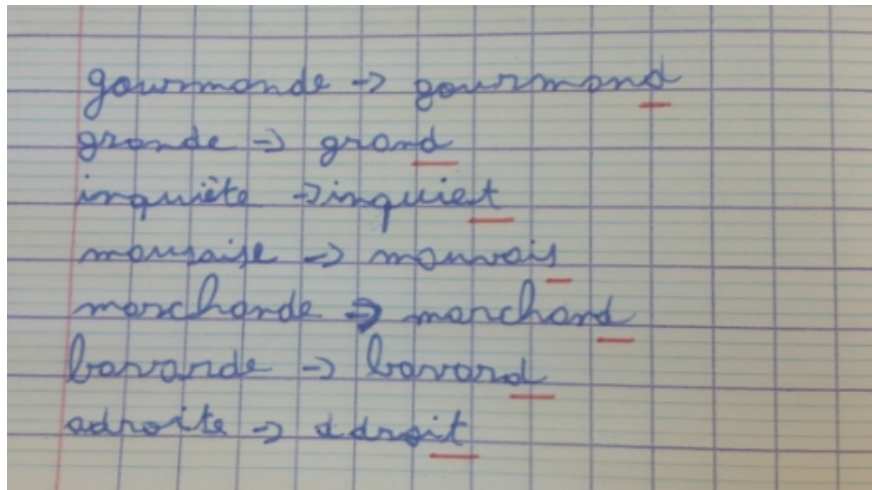 gourmande -> gourmand
grande -> grand
inquiète -> inquiet
mauvaise -> mauvais
marchande -> marchand
bavarde -> bavard
adroite -> adroit